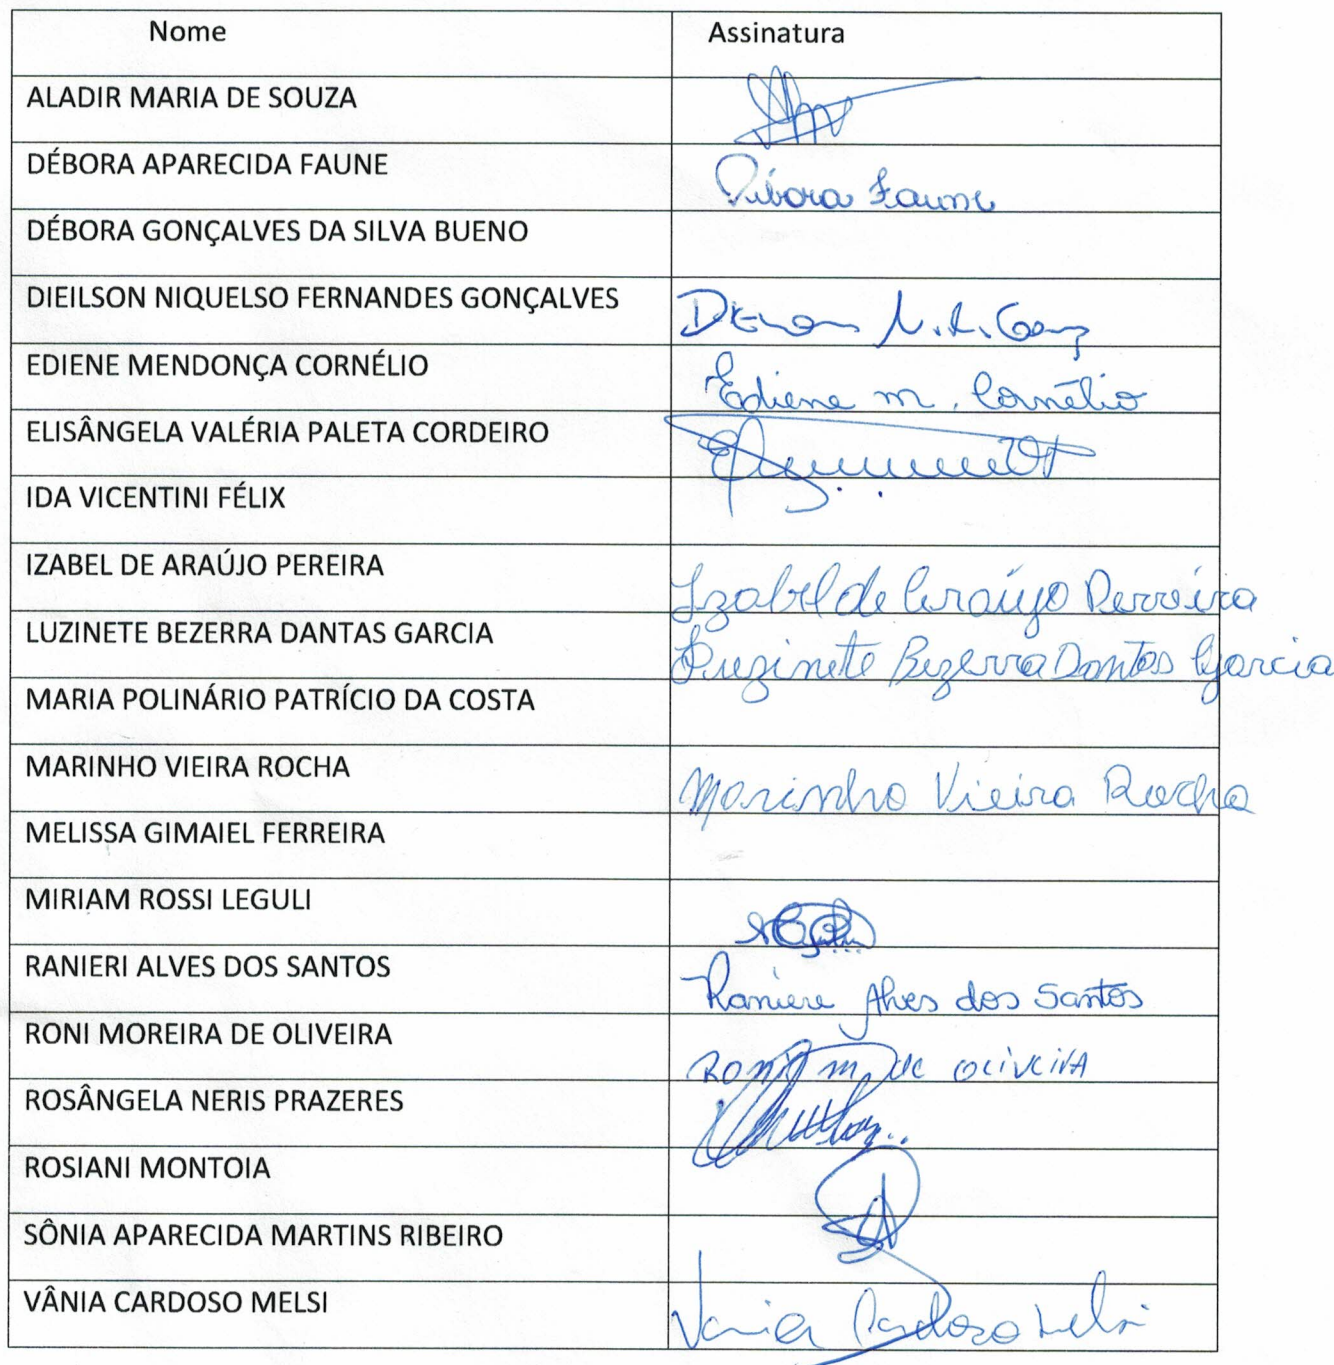 Nome Assinatura
ALADIR MARIA DE SOUZA
DÉBORA APARECIDA FAUNE Débora Faune
DÉBORA GONÇALVES DA SILVA BUENO
DIEILSON NIQUELSO FERNANDES GONÇALVES
EDIENE MENDONÇA CORNÉLIO Ediene m. Cornélio
ELISÂNGELA VALÉRIA PALETA CORDEIRO
IDA VICENTINI FÉLIX
IZABEL DE ARAÚJO PEREIRA Izabel de Araújo Perreira
LUZINETE BEZERRA DANTAS GARCIA Luzinete Bezerra Dantas Garcia
MARIA POLINÁRIO PATRÍCIO DA COSTA
MARINHO VIEIRA ROCHA Marinho Vieira Rocha
MELISSA GIMAIEL FERREIRA
MIRIAM ROSSI LEGULI
RANIERI ALVES DOS SANTOS Raniere Alves dos Santos
RONI MOREIRA DE OLIVEIRA Roni m de oliveira
ROSÂNGELA NERIS PRAZERES
ROSIANI MONTOIA
SÔNIA APARECIDA MARTINS RIBEIRO
VÂNIA CARDOSO MELSI Vania Cardoso Melsi